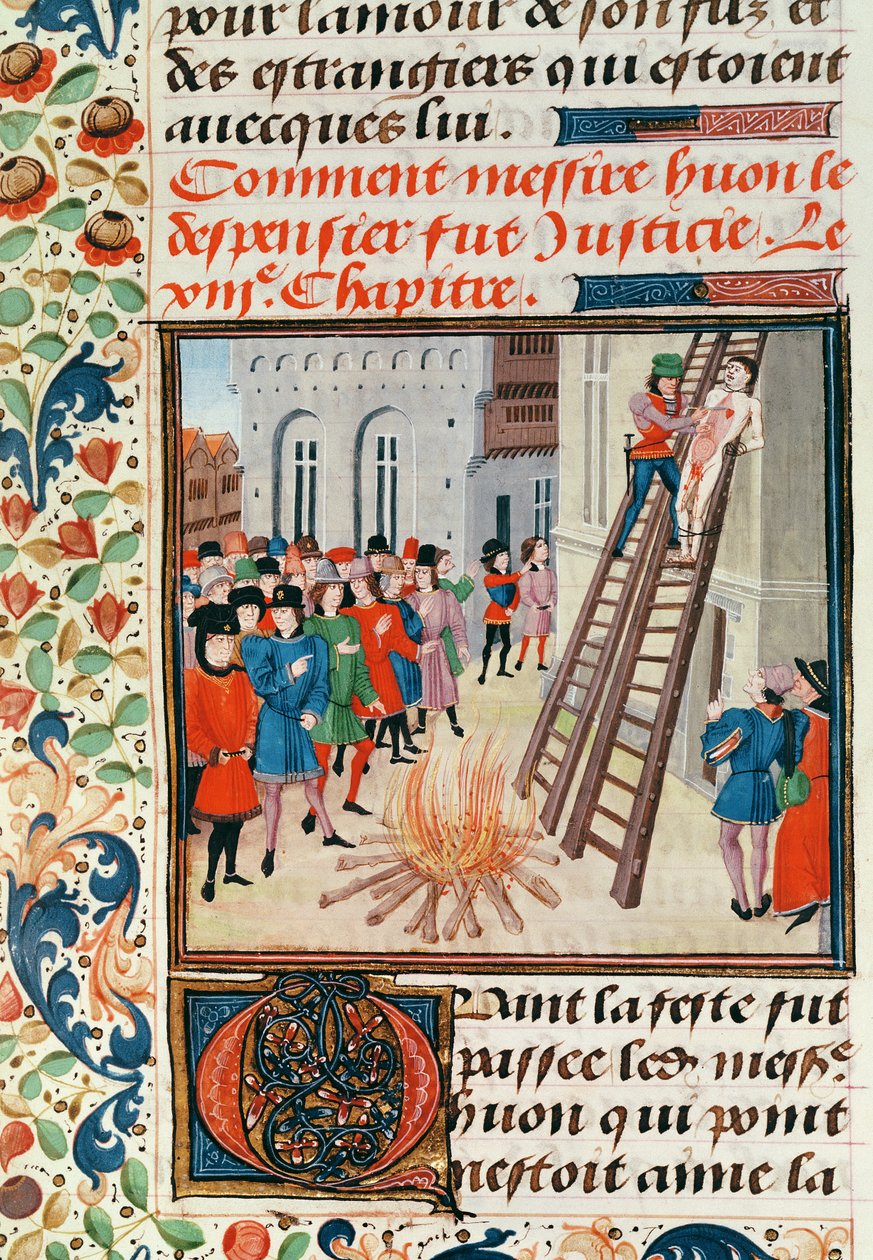 pour lamour de son filz et
des estrangiers qui estoient
auecques lui.
Comment messire huon le
despensier fut Justicie. Le
xiiie. Chapitre.
Quant la feste fut
passee led messe
huon qui point
nestoit aime la